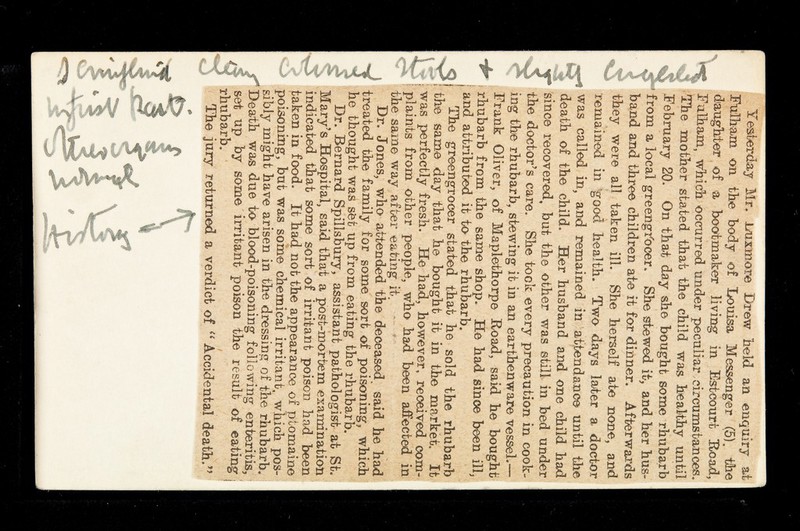 Semifluid clay coloured stools + slightly congested
in first part.
Other organs
normal
History
Yesterday Mr. Luxmore Drew held an enquiry at
Fulham on the body of Louisa Messenger (5), the
daughter of a bootmaker living in Estcourt Road,
Fulham, which occurred under peculiar circumstances.
The mother stated that the child was healthy until
February 20. On that day she bought some rhubarb
from a local greengrocer. She stewed it, and her hus-
band and three children ate it for dinner. Afterwards
they were all taken ill. She herself ate none, and
remained in good health. Two days later a doctor
was called in, and remained in attendance until the
death of the child. Her husband and one child had
since recovered, but the other was still in bed under
the doctor's care. She took every precaution in cook-
ing the rhubarb, stewing it in an earthenware vessel.—
Frank Oliver, of Maplethorpe Road, said he bought
rhubarb from the same shop. He had since been ill,
and attributed it to the rhubarb.
The greengrocer stated that he sold the rhubarb
the same day that he bought it in the market. It
was perfectly fresh. He had, however, received com-
plaints from other people, who had been affected in
the same way after eating it.
Dr. Jones, who attended the deceased, said he had
treated the family for some sort of poisoning, which
he thought was set up from eating the rhubarb.
Dr. Bernard Spillsbury, assistant pathologist at St.
Mary's Hospital, said that a post-mortem examination
indicated that some sort of irritant poison had been
taken in food. It had not the appearance of ptomaine
poisoning, but was some chemical irritant, which pos-
sibly might have arisen in the dressing of the rhubarb.
Death was due to blood-poisoning following enteritis,
set up by some irritant poison the result of eating
rhubarb.
The jury returned a verdict of "Accidental death."